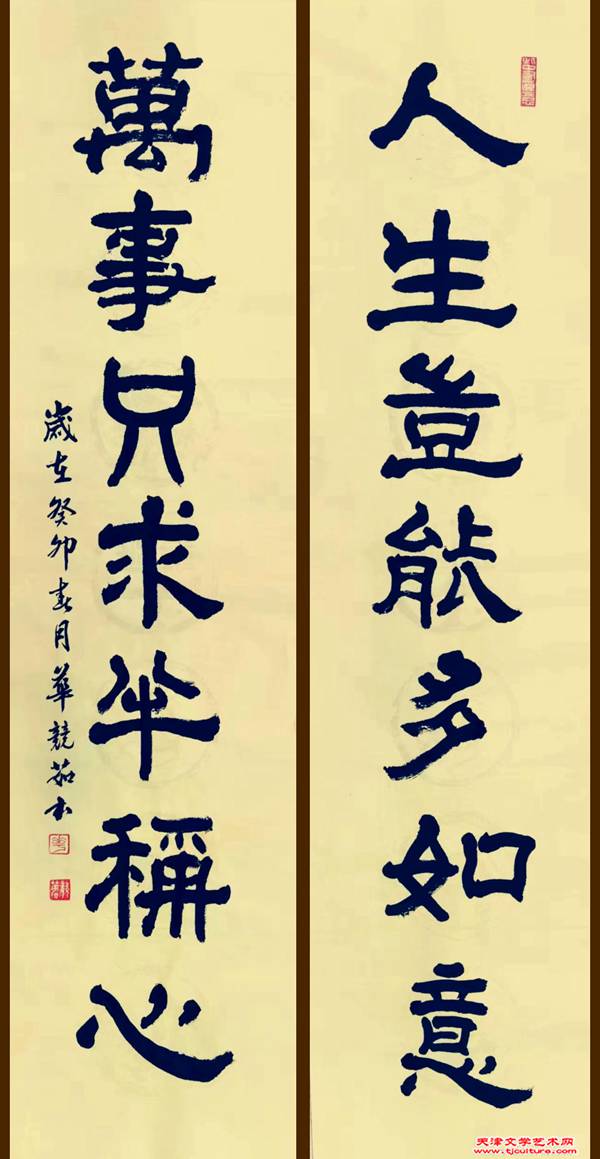 人生豈能多如意
萬事只求半稱心
歲在癸卯春月華競茹書
天津文学艺术网
www.tjculture.com